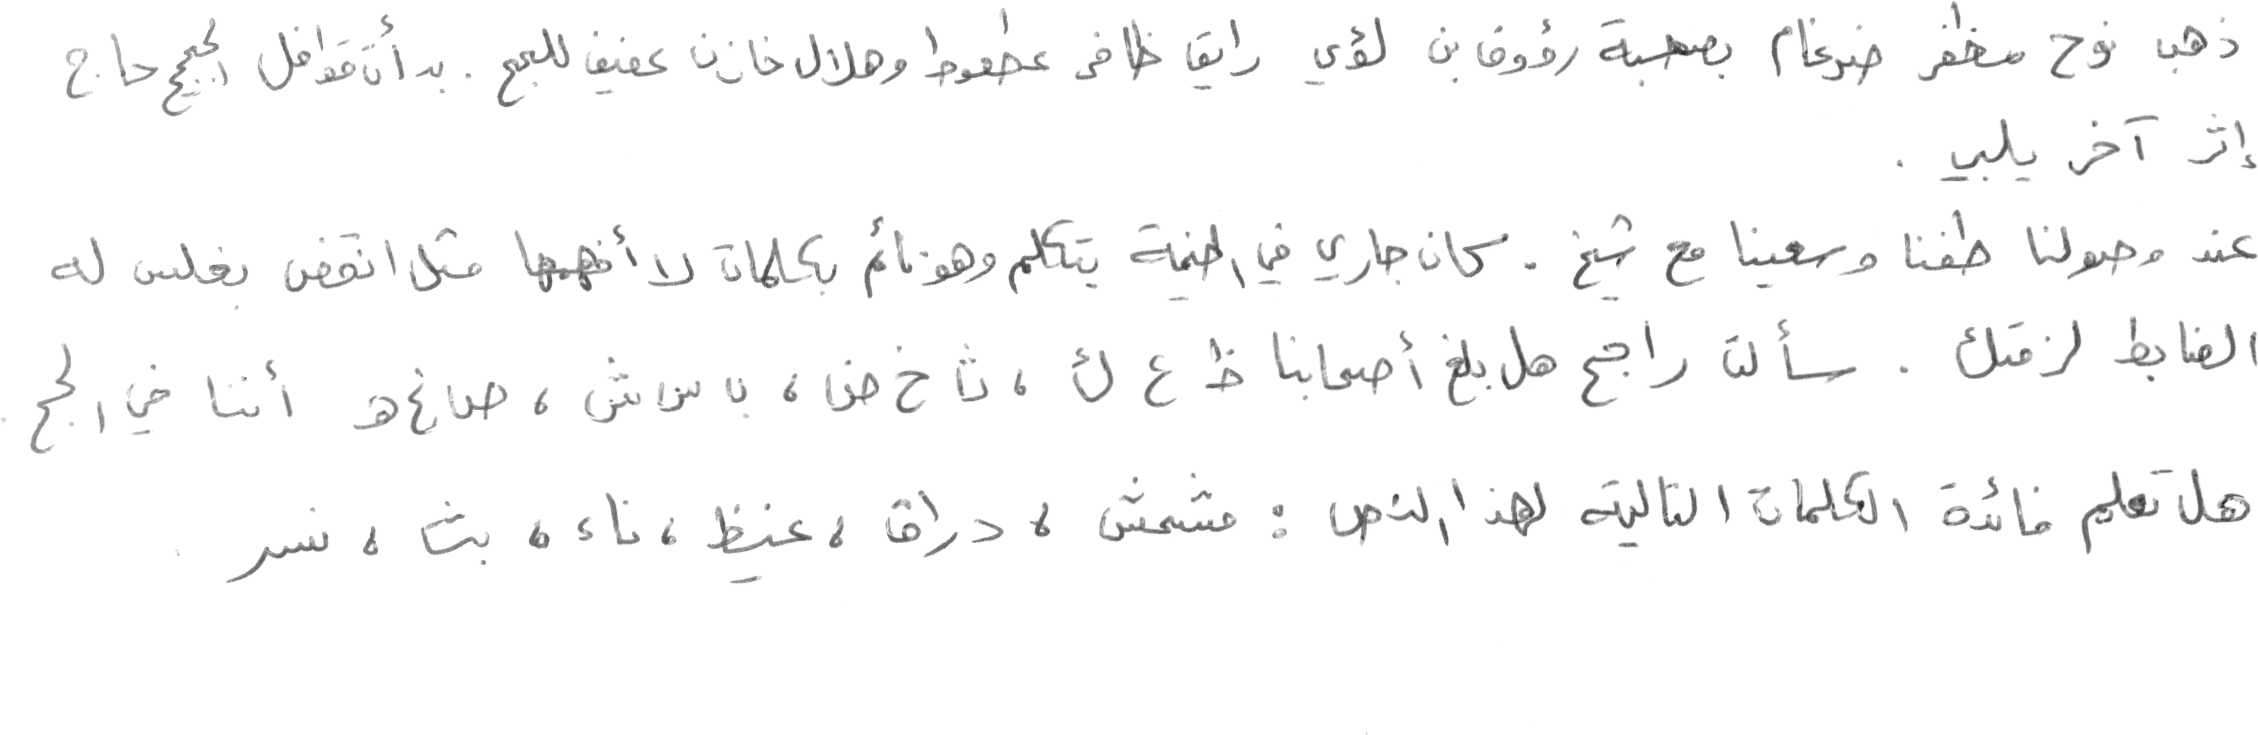 ذهب نوح مظفر ضرغام بصحبة رؤوف بن لؤي رايق ظافر عطعوط وهلال خازن عفيف للحج . بدأت قوافل الحجيج حاج
إثر آخر يلبي .
عند وصولنا طفنا وسعينا مع شيخ . كان جاري في الخيمة يتكلم وهو نائم بكلمات لا أفهمها مثل انقض بغلس له
الضابط لزمتك . سألت راجح هل بلغ أصحابنا ظ ع ك ، ث خ ض ، ب س ش ، ص غ هـ أننا في الحج .
هل تعلم فائدة الكلمات التالية لهذا النص : مشمش ، دراق ، غيظ ، ناء ، بث ، نسر .